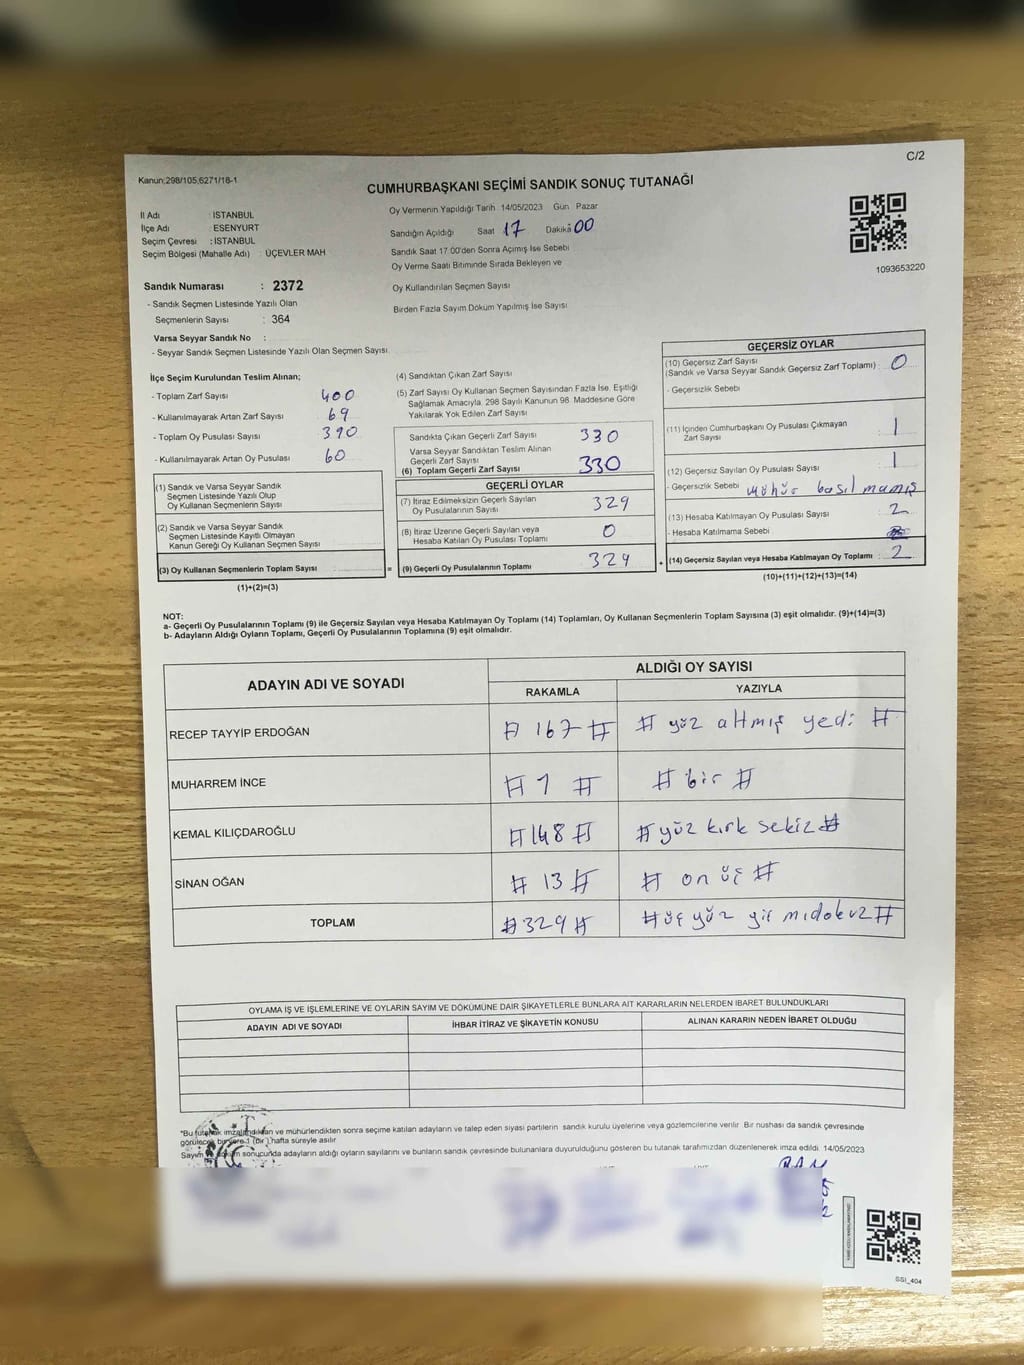 C/2
Kanun:298/105,6271/18-1
CUMHURBAŞKANI SEÇİMİ SANDIK SONUÇ TUTANAĞI
İl Adı : İSTANBUL
İlçe Adı : ESENYURT
Seçim Çevresi : İSTANBUL
Seçim Bölgesi (Mahalle Adı) : ÜÇEVLER MAH
Oy Vermenin Yapıldığı Tarih 14/05/2023 Gün Pazar
Sandığın Açıldığı Saat 17 Dakika 00
Sandık Saat 17 00'den Sonra Açımış İse Sebebi
Oy Verme Saati Bitiminde Sırada Bekleyen ve
Oy Kullandırılan Seçmen Sayısı
Birden Fazla Sayım Döküm Yapılmış İse Sayısı
1093653220
Sandık Numarası : 2372
- Sandık Seçmen Listesinde Yazılı Olan
Seçmenlerin Sayısı : 364
Varsa Seyyar Sandık No :
- Seyyar Sandık Seçmen Listesinde Yazılı Olan Seçmen Sayısı
İlçe Seçim Kurulundan Teslim Alınan;
- Toplam Zarf Sayısı 400
- Kullanılmayarak Artan Zarf Sayısı 69
- Toplam Oy Pusulası Sayısı 390
- Kullanılmayarak Artan Oy Pusulası 60
(1) Sandık ve Varsa Seyyar Sandık
Seçmen Listesinde Yazılı Olup
Oy Kullanan Seçmenlerin Sayısı
(2) Sandık ve Varsa Seyyar Sandık
Seçmen Listesinde Kayıtlı Olmayan
Kanun Gereği Oy Kullanan Seçmen Sayısı
(3) Oy Kullanan Seçmenlerin Toplam Sayısı
(1)+(2)=(3)
=
(4) Sandıktan Çıkan Zarf Sayısı
(5) Zarf Sayısı Oy Kullanan Seçmen Sayısından Fazla İse, Eşitliği
Sağlamak Amacıyla, 298 Sayılı Kanunun 98. Maddesine Göre
Yakılarak Yok Edilen Zarf Sayısı
Sandıkta Çıkan Geçerli Zarf Sayısı 330
Varsa Seyyar Sandıktan Teslim Alınan
Geçerli Zarf Sayısı
(6) Toplam Geçerli Zarf Sayısı 330
GEÇERLİ OYLAR
(7) İtiraz Edilmeksizin Geçerli Sayılan
Oy Pusulalarının Sayısı 329
(8) İtiraz Üzerine Geçerli Sayılan veya
Hesaba Katılan Oy Pusulası Toplamı 0
(9) Geçerli Oy Pusulalarının Toplamı 329
+
GEÇERSİZ OYLAR
(10) Geçersiz Zarf Sayısı
(Sandık ve Varsa Seyyar Sandık Geçersiz Zarf Toplamı) : 0
- Geçersizlik Sebebi
(11) İçinden Cumhurbaşkanı Oy Pusulası Çıkmayan
Zarf Sayısı 1
(12) Geçersiz Sayılan Oy Pusulası Sayısı 1
- Geçersizlik Sebebi mühür basılmamış
(13) Hesaba Katılmayan Oy Pusulası Sayısı 2
- Hesaba Katılmama Sebebi
(14) Geçersiz Sayılan veya Hesaba Katılmayan Oy Toplamı : 2
(10)+(11)+(12)+(13)=(14)
NOT:
a- Geçerli Oy Pusulalarının Toplamı (9) ile Geçersiz Sayılan veya Hesaba Katılmayan Oy Toplamı (14) Toplamları, Oy Kullanan Seçmenlerin Toplam Sayısına (3) eşit olmalıdır. (9)+(14)=(3)
b- Adayların Aldığı Oyların Toplamı, Geçerli Oy Pusulalarının Toplamına (9) eşit olmalıdır.
ADAYIN ADI VE SOYADI
ALDIĞI OY SAYISI
RAKAMLA YAZIYLA
RECEP TAYYİP ERDOĞAN # 167 # # yüz altmış yedi #
MUHARREM İNCE # 1 # # bir #
KEMAL KILIÇDAROĞLU # 148 # # yüz kırk sekiz #
SİNAN OĞAN # 13 # # on üç #
TOPLAM # 329 # # üç yüz yirmidokuz #
OYLAMA İŞ VE İŞLEMLERİNE VE OYLARIN SAYIM VE DÖKÜMÜNE DAİR ŞİKAYETLERLE BUNLARA AİT KARARLARIN NELERDEN İBARET BULUNDUKLARI
ADAYIN ADI VE SOYADI İHBAR İTİRAZ VE ŞİKAYETİN KONUSU ALINAN KARARIN NEDEN İBARET OLDUĞU
*Bu tutanak imzalandıktan ve mühürlendikten sonra seçime katılan adayların ve talep eden siyasi partilerin sandık kurulu üyelerine veya gözlemcilerine verilir. Bir nushası da sandık çevresinde
görülecek bir yere 1 (bir) hafta süreyle asılır
Sayım ve döküm sonucunda adayların aldığı oyların sayılarını ve bunların sandık çevresinde bulunanlara duyurulduğunu gösteren bu tutanak tarafımızdan düzenlenerek imza edildi. 14/05/2023
SSI_404